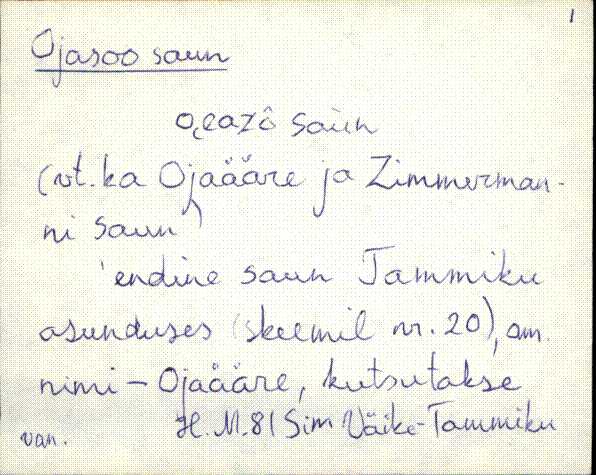 1
Ojasoo saun
o̬eazô saùn
(vt. ka Ojaääre ja Zimmerman-
ni saun)
'endine saun Tammiku
asunduses (skeemil nr. 20), am.
nimi - Ojaääre, kutsutakse
van. H. M. 81 Sim Väike-Tammiku